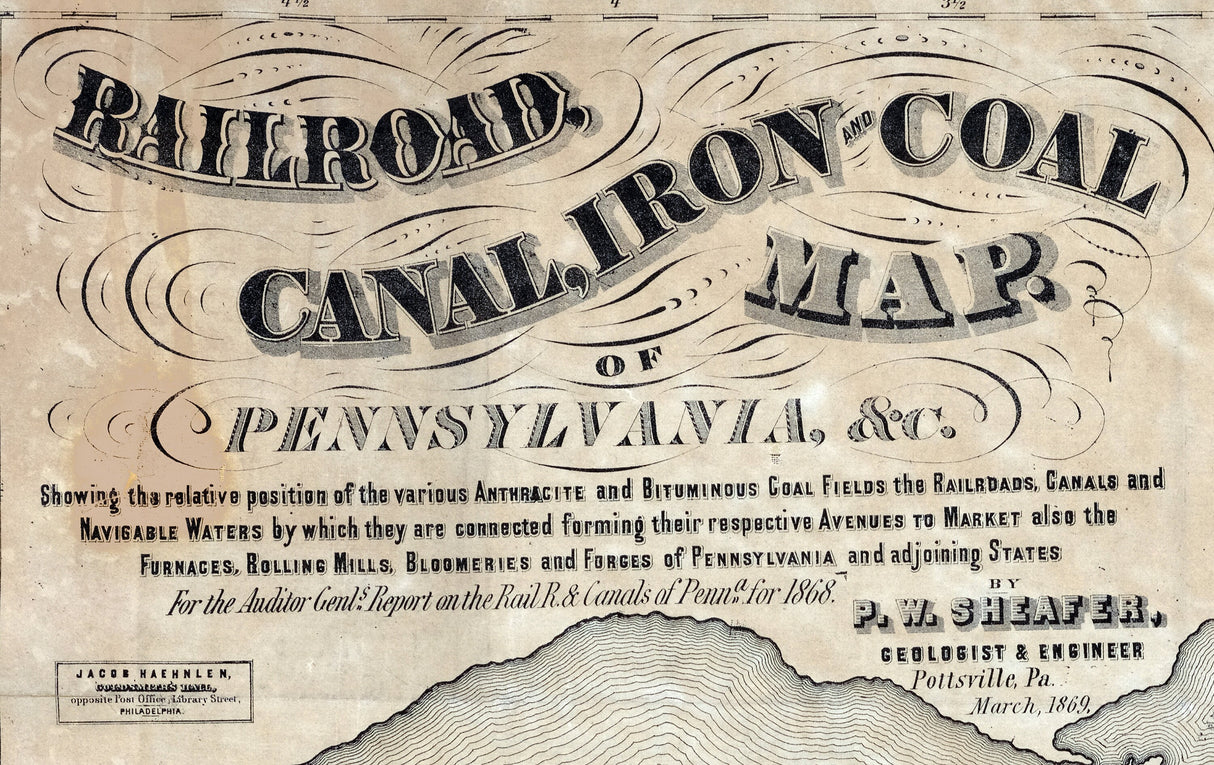 4½ 4 3½
RAILROAD,
CANAL, IRON AND COAL
MAP.
OF
PENNSYLVANIA, &c.
Showing the relative position of the various ANTHRACITE and BITUMINOUS COAL FIELDS the RAILROADS, CANALS and
NAVIGABLE WATERS by which they are connected forming their respective AVENUES TO MARKET also the
FURNACES, ROLLING MILLS, BLOOMERIES and FORGES of PENNSYLVANIA and adjoining STATES
For the Auditor Genl's Report on the Rail R. & Canals of Penna. for 1868.
BY
P. W. SHEAFER,
GEOLOGIST & ENGINEER
Pottsville, Pa.
March, 1869.
JACOB HAEHNLEN,
GOLDSMITH'S HALL,
opposite Post Office, Library Street,
PHILADELPHIA.